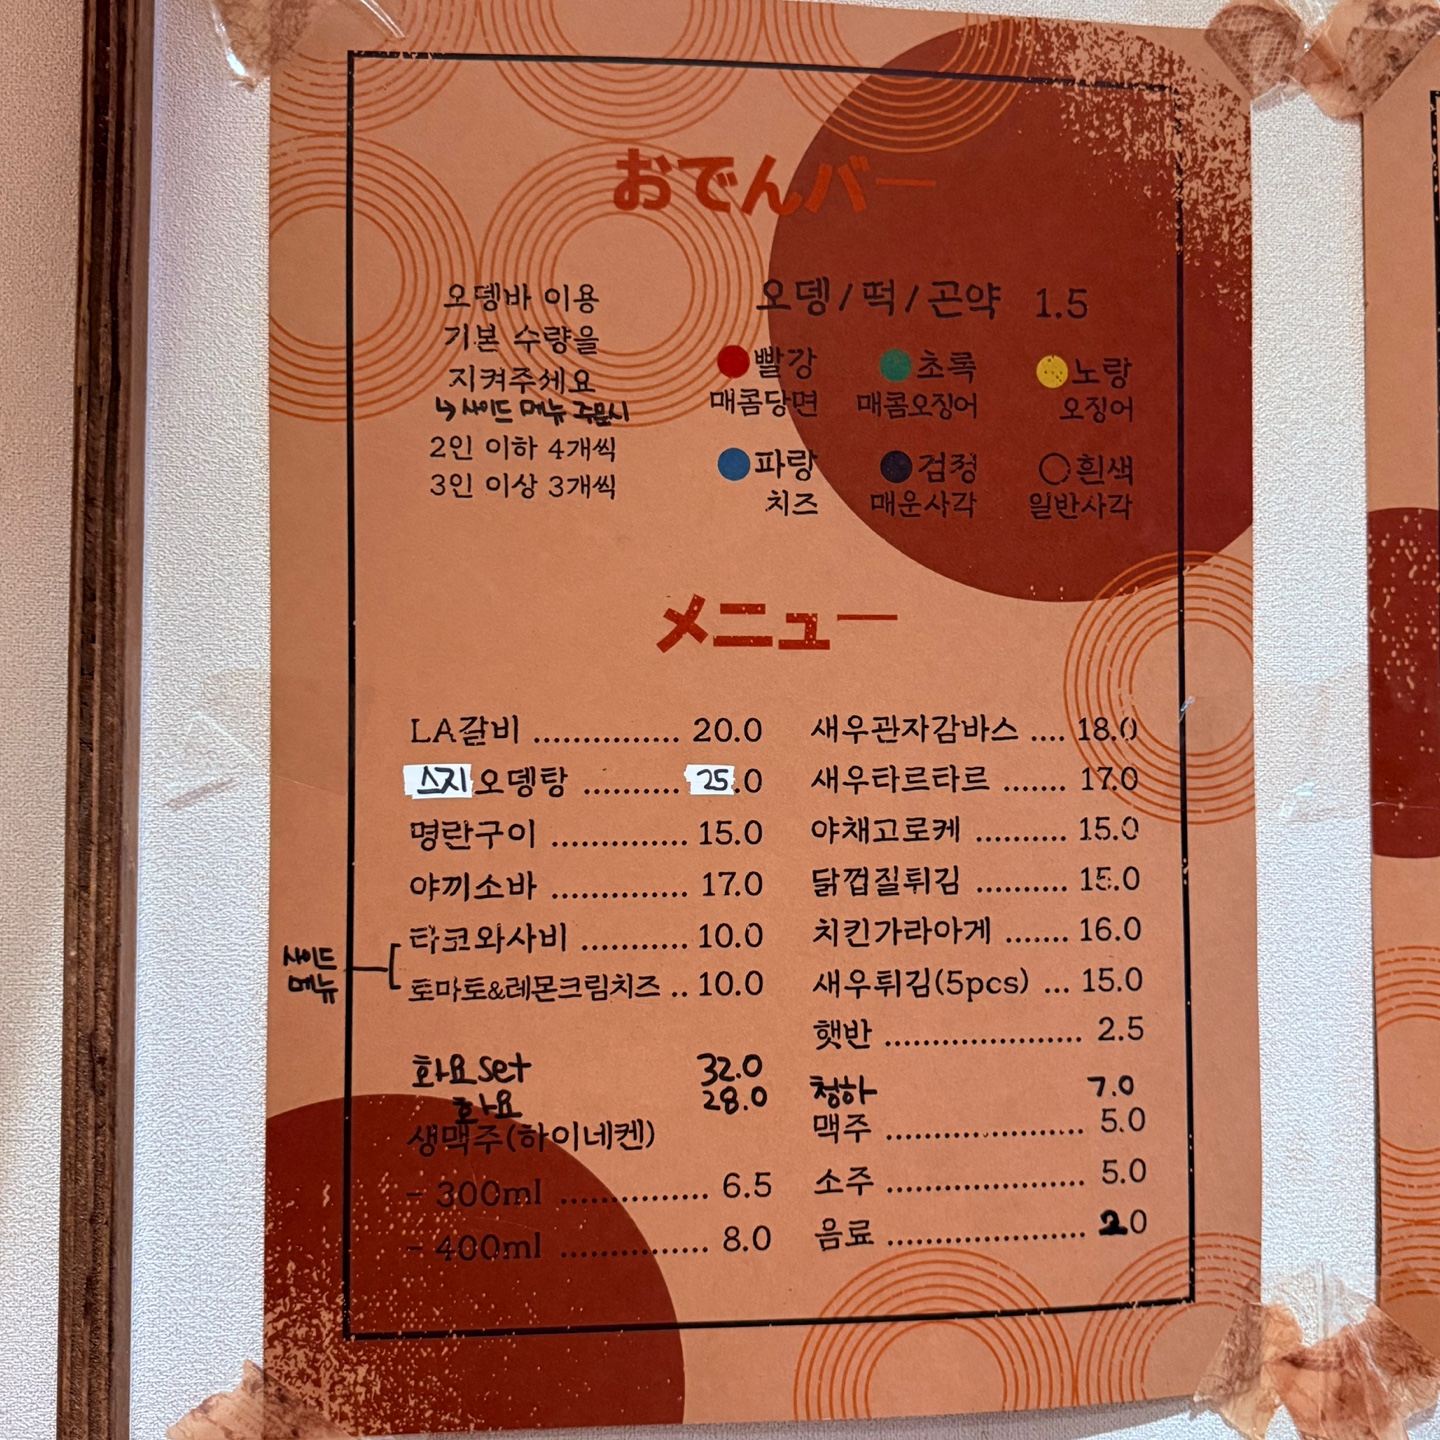 おでんバー
오뎅바 이용
기본 수량을
지켜주세요
↳ 사이드 메뉴 주문시
2인 이하 4개씩
3인 이상 3개씩
오뎅/떡/곤약 1.5
빨강 초록 노랑
매콤당면 매콤오징어 오징어
파랑 검정 흰색
치즈 매운사각 일반사각
メニュー
LA갈비 ............... 20.0
스지오뎅탕 .......... 25.0
명란구이 .............. 15.0
야끼소바 .............. 17.0
타코와사비 ........... 10.0
토마토&레몬크림치즈 .. 10.0
사이드
메뉴
화요set 32.0
화요 28.0
생맥주(하이네켄)
- 300ml ............... 6.5
- 400ml ............... 8.0
새우관자감바스 .... 18.0
새우타르타르 ....... 17.0
야채고로케 .......... 15.0
닭껍질튀김 .......... 15.0
치킨가라아게 ....... 16.0
새우튀김(5pcs) ... 15.0
햇반 .................... 2.5
청하 7.0
맥주 .................... 5.0
소주 .................... 5.0
음료 .................... 2.0